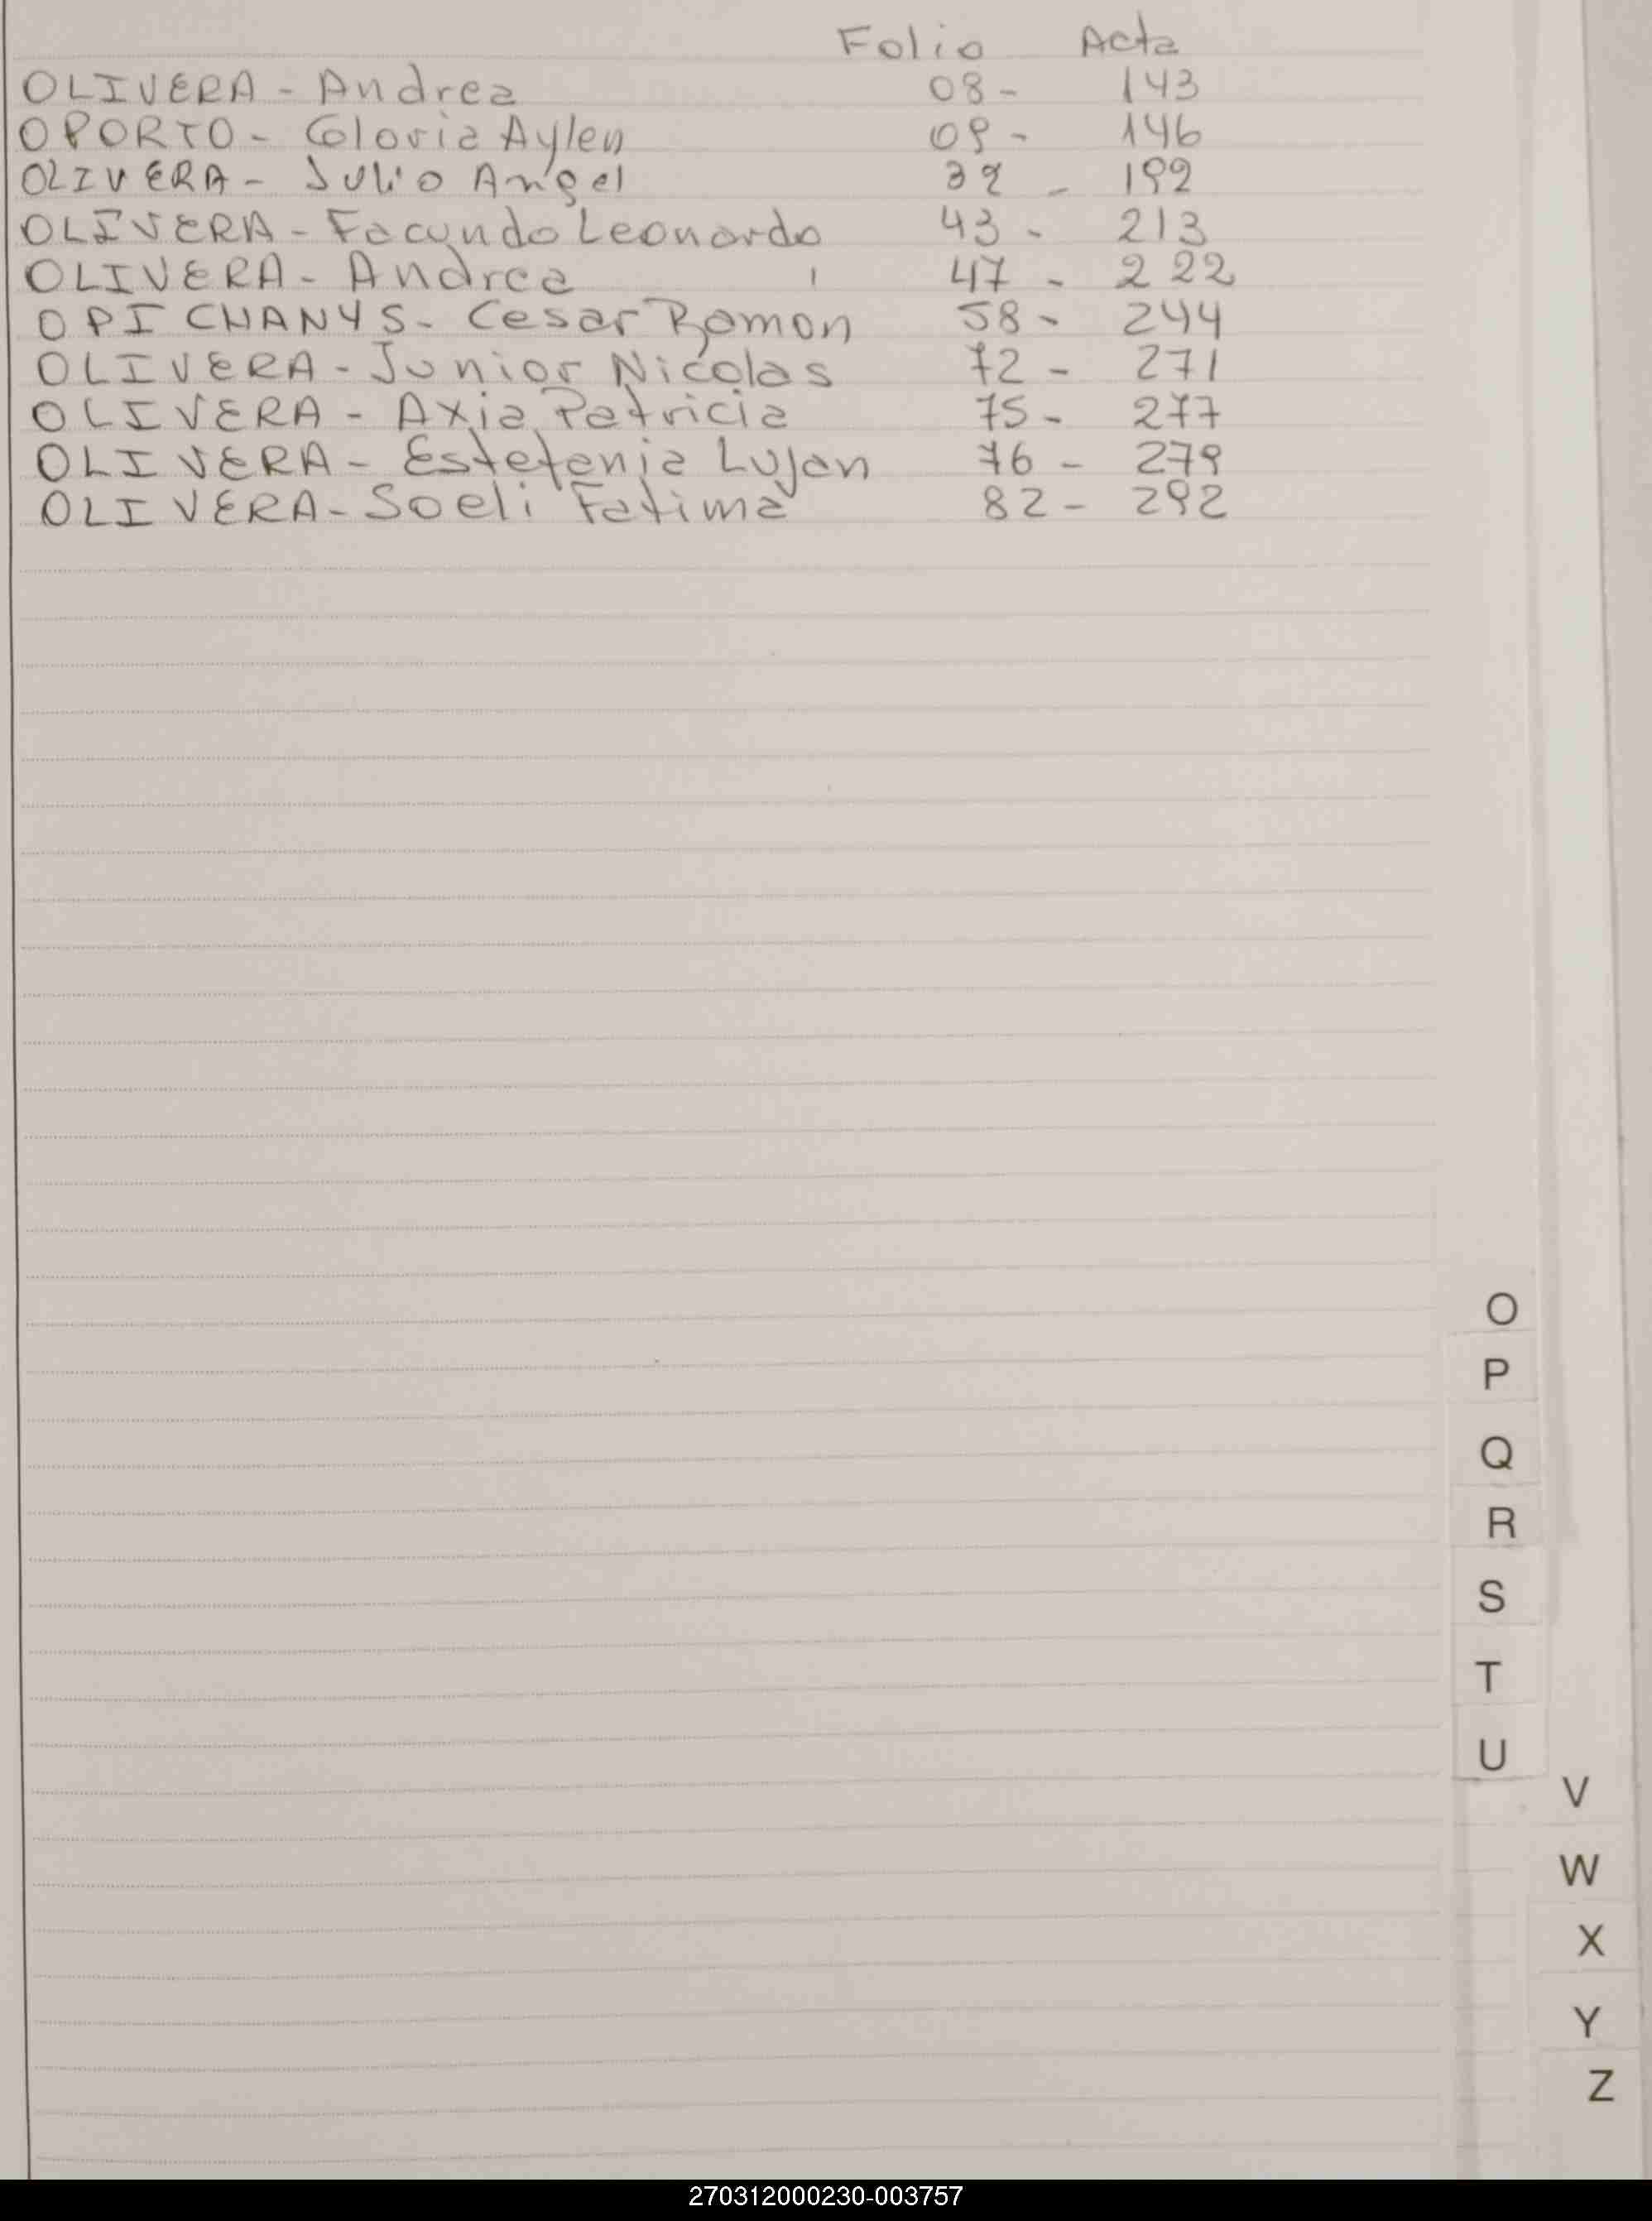 Folio Acta
OLIVERA - Andrea 08 - 143
OPORTO - Gloria Aylen 09 - 146
OLIVERA - Julio Angel 32 - 192
OLIVERA - Facundo Leonardo 43 - 213
OLIVERA - Andrea 47 - 222
OPICHANYS - Cesar Ramon 58 - 244
OLIVERA - Junior Nicolas 72 - 271
OLIVERA - Axia Patricia 75 - 277
OLIVERA - Estefania Lujan 76 - 279
OLIVERA - Soeli Fatima 82 - 292
O
P
Q
R
S
T
U
V
W
X
Y
Z
270312000230-003757